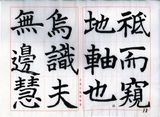 祇而窺
地軸也
焉識夫
無邊慧